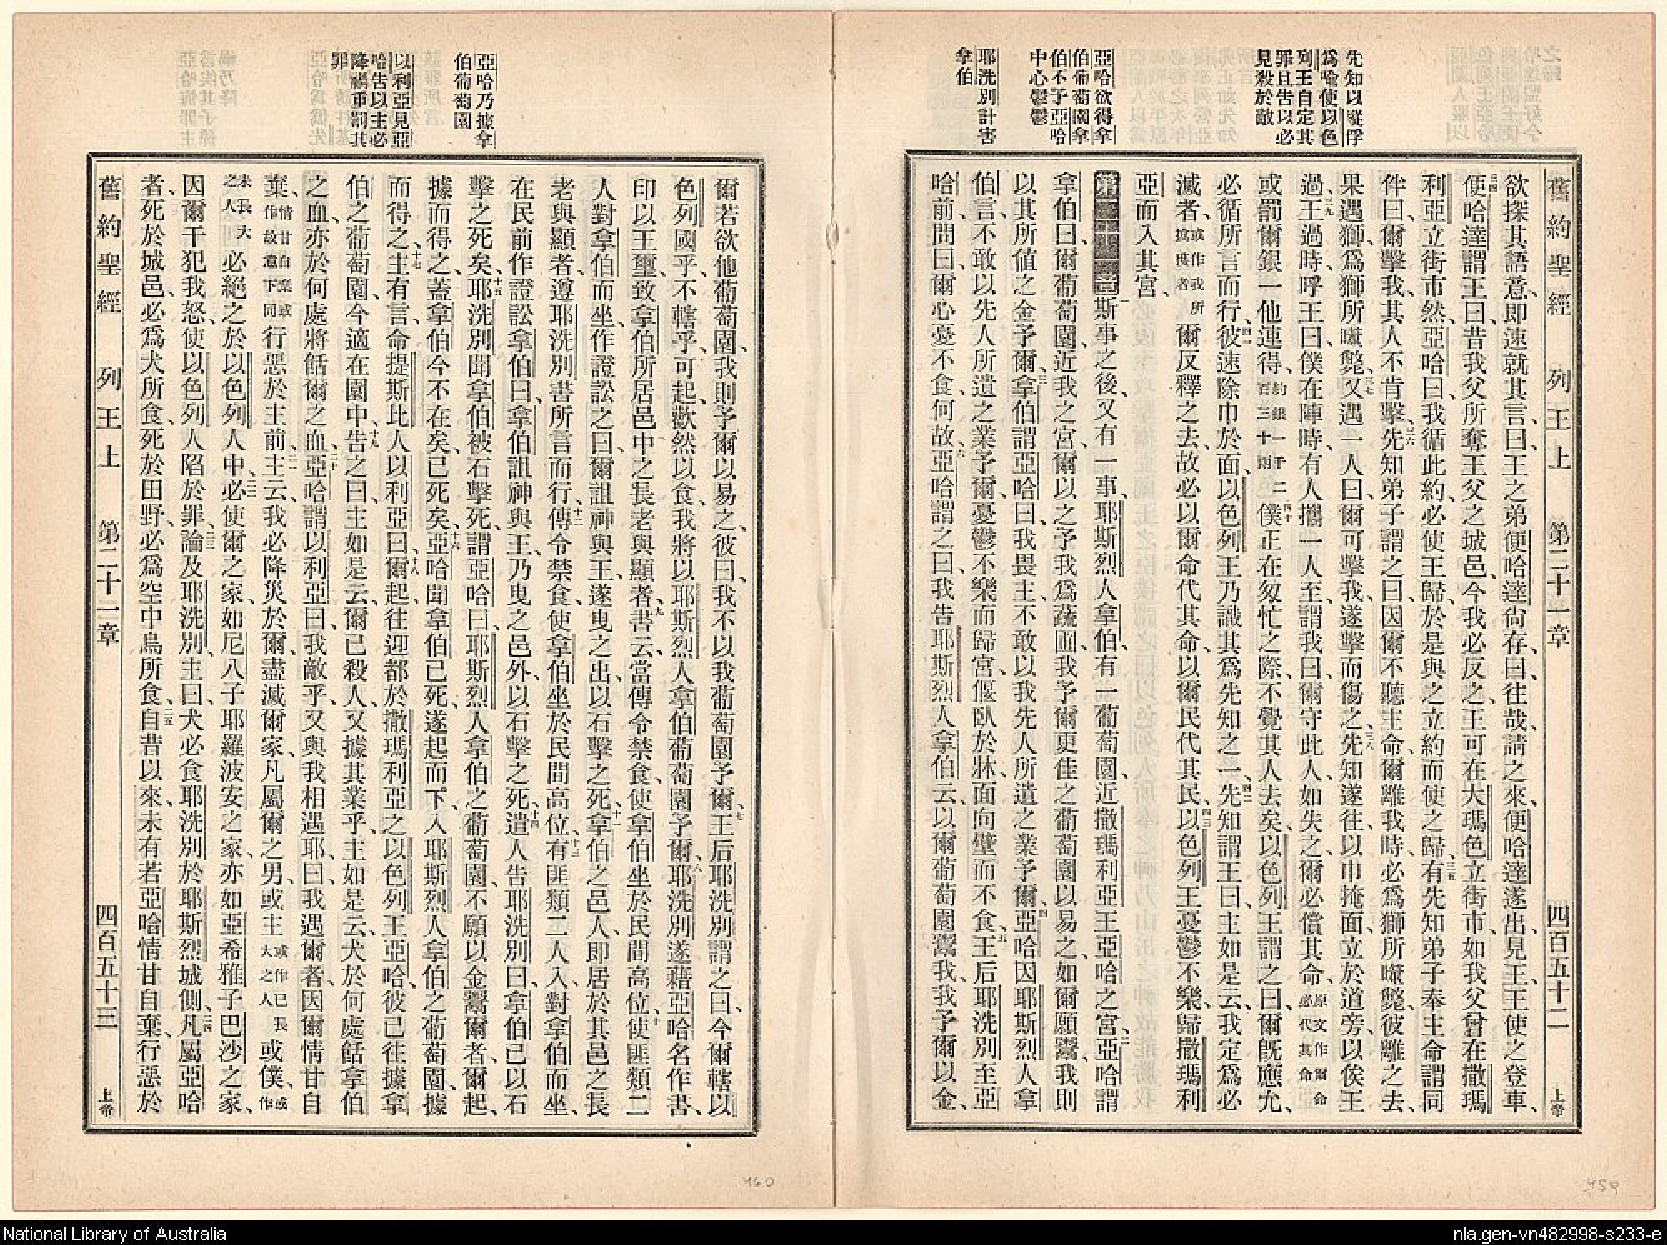 先知以縱俘
爲喩使以色
列王自定其
罪且告以必
見殺於敵
亞哈欲得拿
伯葡萄園拿
伯不予亞哈
中心鬱鬱
耶洗別計害
拿伯
舊約聖經 列王上 第二十一章 四百五十二 上帝
欲探其語意、卽速就其言、曰、王之弟便哈達尙存、曰、往哉、請之來、便哈達遂出、見王、王使之登車、
便哈達謂王曰、昔我父所奪王父之城邑、今我必反之、王可在大瑪色立街市、如我父曾在撒瑪
利亞立街市然、亞哈曰、我循此約、必使王歸、於是與之立約而使之歸、有先知弟子奉主命謂同
伴曰、爾擊我、其人不肯擊、先知弟子謂之曰、因爾不聽主命、爾離我時、必爲獅所噬斃、彼離之去、
果遇獅、爲獅所噬斃、又遇一人曰、爾可擊我、遂擊而傷之、先知遂往、以巾掩面、立於道旁、以俟王
過、王過時、呼王曰、僕在陣時、有人攜一人至、謂我曰、爾守此人、如失之、爾必償其命、原文作爾命必代其命
或罰爾銀一他連得、約銀一千二百三十兩 僕正在匆忙之際、不覺其人去矣、以色列王謂之曰、爾旣應允、
必循所言而行、彼速除巾於面、以色列王乃識其爲先知之一、先知謂王曰、主如是云、我定爲必
滅者、或作我所擯棄者 爾反釋之去、故必以爾命代其命、以爾民代其民、以色列王憂鬱不樂、歸撒瑪利
亞而入其宮、
第二十一章 斯事之後、又有一事、耶斯烈人拿伯有一葡萄園、近撒瑪利亞王亞哈之宮、亞哈謂
拿伯曰、爾葡萄園、近我之宮、爾以之予我爲蔬圃、我予爾更佳之葡萄園以易之、如爾願鬻、我則
以其所値之金予爾、拿伯謂亞哈曰、我畏主、不敢以我先人所遺之業予爾、亞哈因耶斯烈人拿
伯言、不敢以先人所遺之業予爾、憂鬱不樂而歸宮、偃臥於牀、面向壁而不食、王后耶洗別至亞
哈前、問曰、爾心憂不食何故、亞哈謂之曰、我告耶斯烈人拿伯云、以爾葡萄園鬻我、我予爾以金、
亞哈乃據拿
伯葡萄園
以利亞見亞
哈告以主必
降禍重罰其
罪
爾若欲他葡萄園、我則予爾以易之、彼曰、我不以我葡萄園予爾、王后耶洗別謂之曰、今爾轄以
色列國乎、不轄乎、可起、歡然以食、我將以耶斯烈人拿伯葡萄園予爾、耶洗別遂藉亞哈名作書、
印以王璽、致拿伯所居邑中之長老與顯者、書云、當傳令禁食、使拿伯坐於民間高位、使匪類二
人對拿伯而坐、作證訟之曰、爾詛神與王、遂曳之出、以石擊之死、拿伯之邑人、卽居於其邑之長
老與顯者、遵耶洗別書所言而行、傳令禁食、使拿伯坐於民間高位、有匪類二人入對拿伯而坐、
在民前作證訟拿伯曰、拿伯詛神與王、乃曳之邑外、以石擊之死、遣人告耶洗別曰、拿伯已以石
擊之死矣、耶洗別聞拿伯被石擊死、謂亞哈曰、耶斯烈人拿伯之葡萄園、不願以金鬻爾者、爾起、
據而得之、蓋拿伯今不在矣、已死矣、亞哈聞拿伯已死、遂起而下、入耶斯烈人拿伯之葡萄園、據
而得之、主有言命提斯比人以利亞曰、爾起、往迎都於撒瑪利亞之以色列王亞哈、彼已往據拿
伯之葡萄園、今適在園中、告之曰、主如是云、爾已殺人、又據其業乎、主如是云、犬於何處餂拿伯
之血、亦於何處將餂爾之血、亞哈謂以利亞曰、我敵乎、又與我相遇耶、曰、我遇爾者、因爾情甘自
棄、情甘自棄或作故意下同 行惡於主前、主云、我必降災於爾、盡滅爾家、凡屬爾之男、或主或作已長大之人 或僕、或作
未長大之人 必絕之於以色列人中、必使爾之家、如尼八子耶羅波安之家、亦如亞希雅子巴沙之家、
因爾干犯我怒、使以色列人陷於罪、論及耶洗別、主曰、犬必食耶洗別於耶斯烈城側、凡屬亞哈
者、死於城邑、必爲犬所食、死於田野、必爲空中鳥所食、自昔以來、未有若亞哈情甘自棄、行惡於
舊約聖經 列王上 第二十一章 四百五十三 上帝
460
459
National Library of Australia
nla.gen-vn482998-s233-e